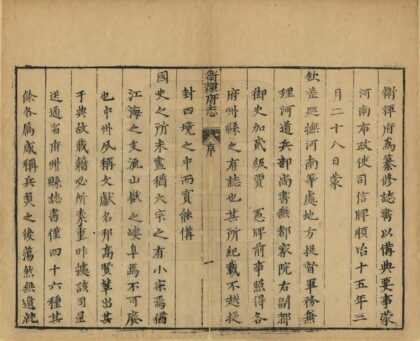 衛輝府爲纂修誌書以備典要事蒙
河南布政使司信牌順治十五年三
月二十八日蒙
欽差巡撫河南等處地方提督軍務兼
理河道兵部尚書兼都察院右副都
御史加貳級賈 憲牌前事照得各
府州縣之有誌也其所紀載不越提
封四境之中而實能備
衛輝府志 序 一
國史之所未盡猶大宗之有小宗焉猶
江海之支流山嶽之嶁阜焉不可廢
也中州夙稱文獻名邦高賢輩出其
于典故載籍必所素重昨據該司呈
送通省府州縣誌書僅四十六種其
餘各屬咸稱兵燹之後蕩然無遺